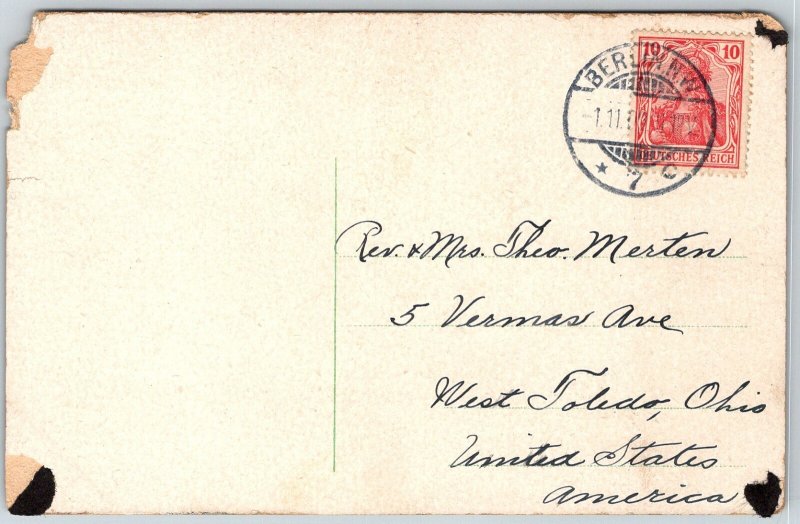 10 10
BERLIN N.W.
DEUTSCHES REICH
* 7 C
Rev. & Mrs. Theo. Merten
5 Vermas Ave
West Toledo, Ohio
United States
America